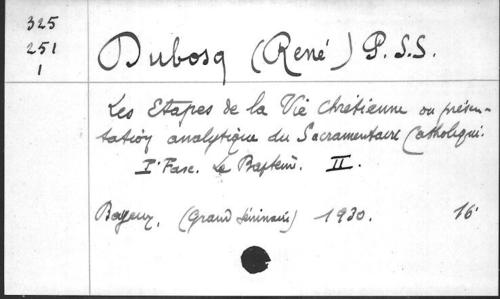 325
251
1
Dubosq (René) P.S.S.
Les Etapes de la Vie Chrétienne ou présen-
tation analytique du Sacramentaire Catholique.
I° Fasc. Le Baptême. II.
Bayeux, (Grand Séminaire) 1930. 16°